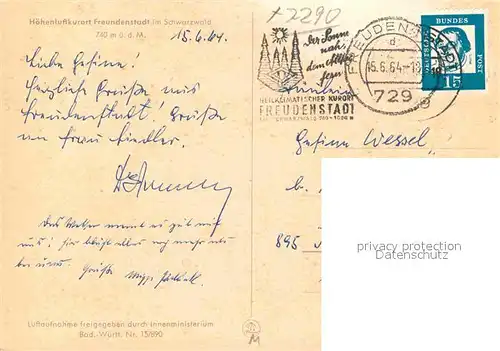 Höhenluftkurort Freudenstadt im Schwarzwald
740 m ü. d. M.
15.6.64.
Liebe Gesine.
Herzliche Grüße aus
Freudenstadt! Grüße
an Frau Fiedler.
Das Wetter meint es gut mit
uns! hier blüht alles noch mehr als
bei uns. Grüße
Luftaufnahme freigegeben durch Innenministerium
Bad.-Württ. Nr. 15/890
x2290
Der Sonne
nah,
dem Alltag
fern
HEILKLIMATISCHER KURORT
FREUDENSTADT
FREUDENSTADT
d
15.6.64-18
729
DEUTSCHE BUNDESPOST
15
Fräulein
Gesine Wessel
b.
895
privacy protection
Datenschutz
M